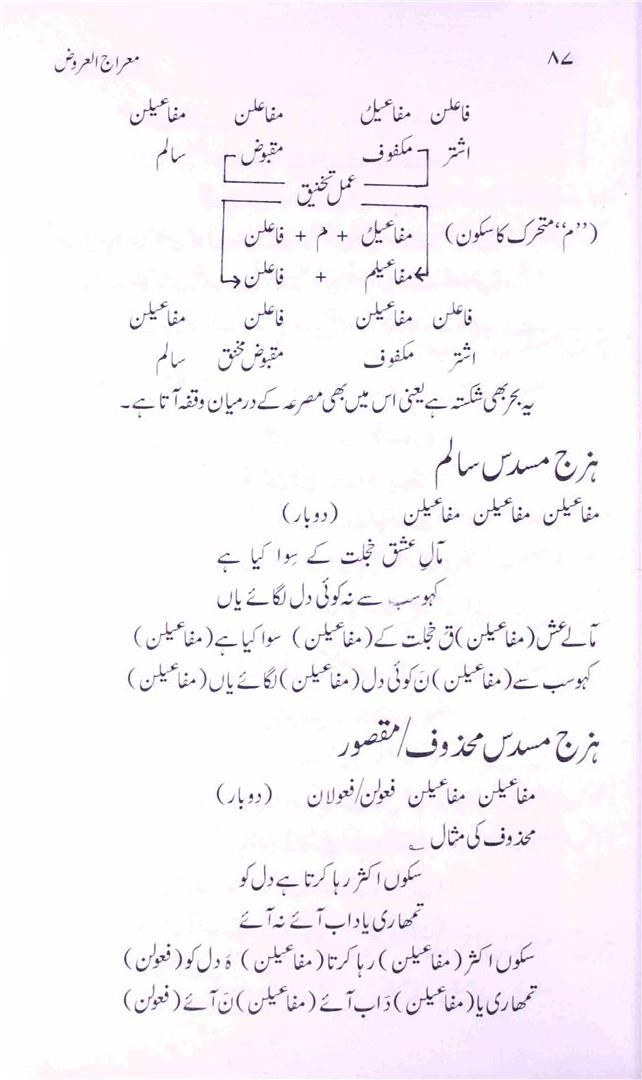 ۸۷ معراج العروض
فاعلن مفاعیلُ مفاعلن مفاعیلن
اشتر مکفوف مقبوض سالم
عمل تخنیق
(”م“ متحرک کا سکون) مفاعیلُ + مْ + فاعلن
مفاعیلم + فاعلن
فاعلن مفاعیلن فاعلن مفاعیلن
اشتر مکفوف مقبوض مخنق سالم
یہ بحر بھی شکستہ ہے یعنی اس میں بھی مصرعہ کے درمیان وقفہ آتا ہے۔
ہزج مسدس سالم
مفاعیلن مفاعیلن مفاعیلن (دوبار)
مآلِ عشق خجلت کے سِوا کیا ہے
کہو سب سے نہ کوئی دل لگائے یاں
مآلے عش (مفاعیلن) ق خجلت کے (مفاعیلن) سوا کیا ہے (مفاعیلن)
کہو سب سے (مفاعیلن) نَ کوئی دل (مفاعیلن) لگائے یاں (مفاعیلن)
ہزج مسدس محذوف/مقصور
مفاعیلن مفاعیلن فعولن/فعولان (دوبار)
محذوف کی مثال ؎
سکوں اکثر رہا کرتا ہے دل کو
تمھاری یاد اب آئے نہ آئے
سکوں اکثر (مفاعیلن) رہا کرتا (مفاعیلن) ہَ دل کو (فعولن)
تمھاری یا (مفاعیلن) دَاب آئے (مفاعیلن) نَ آئے (فعولن)